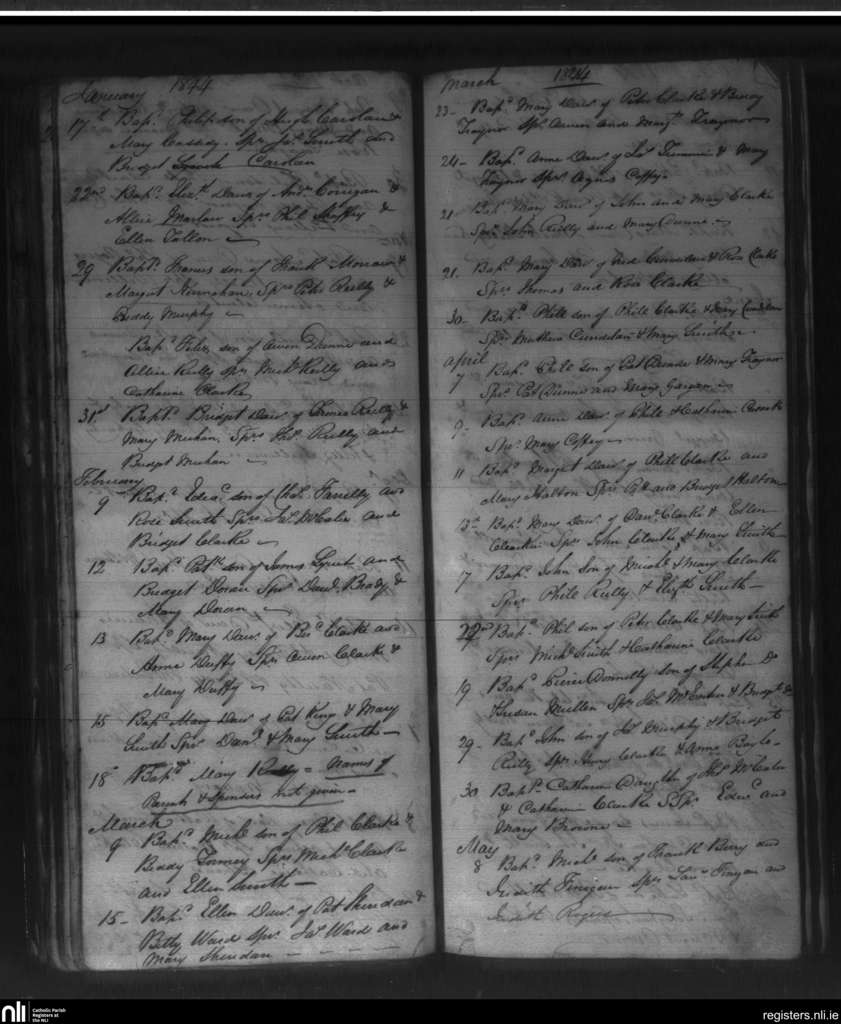 January 1844
17th Bapd. Philip son of Hugh Carolan &
Mary Cassady. Sprs Jas. Smith and
Bridget Carolan
22nd Bapd. Elizth. Dawr. of Andw. Corrigan &
Allice Marlow Sprs Phil Shaffry &
Ellen Tallon
29 Bapd. Francis son of Frank &
Margret Sprs Peter Reilly &
Biddy Murphy
Bapd. Peter son of Owen Dunne and
Allice Reilly Sprs Michl. Reilly and
Catharine Clarke
31st Bapd. Bridget Dawr. of Reilly &
Mary Meehan, Sprs Thos. Reilly and
Bridget Meehan
February
9 Bapd. Edwd. son of Chas. Farrelly and
Rose Smith Sprs Jas. McCabe and
Bridget Clarke
12 Bapd. Patk. son of James Lynch and
Bridget Doran Sprs Dawd. Brady &
Mary Doran
13 Bapd. Mary Dawr. of Clarke and
Anne Duffy Sprs Owen Clarke &
Mary Duffy
15 Bapd. Mary Dawr. of Pat King & Mary
Smith Sprs Danl. & Mary Smith
18 Bapd. Mary Reilly = Names of
Parents & Sponsors not given
March
9 Bapd. Michl. son of Phil Clarke &
Biddy Sprs Michl. Clarke
and Ellen Smith
15 Bapd. Ellen Dawr. of Pat Sheridan &
Betty Ward Sprs Jas. Ward and
Mary Sheridan
March 1844
23 Bapd. Mary Dawr. of Peter Clarke & Biddy
Traynor Sprs Owen and Margt. Traynor
24 Bapd. Anne Dawr. of & Mary
Traynor Sprs Agnes Coffey
21 Bapd. Mary Dawr. of John and Mary Clarke
Sprs John Reilly and Mary Dunne
21. Bapd. Mary Dawr. of & Rose Clarke
Sprs Thomas and Rose Clarke
30 Bapd. Phill son of Phill Clarke & Mary
Sprs Mathew & Mary Smith
April
7 Bapd. Phill son of Pat & Mary Traynor
Sprs Pat Dunne and Mary Gargan
9 Bapd. Anne Dawr. of Phill & Catharine
Spr. Mary Coffey
11 Bapd. Margret Dawr. of Phill Clarke and
Mary Halton Sprs and Bridget Halton
13th Bapd. Mary Dawr. of Clarke & Ellen
Clarke Sprs John Clarke & Mary Smith
17 Bapd. John Son of Michl. & Mary Clarke
Sprs Phill Reilly & Elizth Smith
22nd Bapd. Phil son of Peter Clarke & Mary Smith
Sprs Michl. Smith & Catharine Clarke
19 Bapd. Pierce Donnelly son of Stephen Do
& Susan Mullen Sprs & Bridgt. Do
29 Bapd. John son of Jas. Murphy & Bridget
Reilly Sprs Henry Clarke & Anne Boyle
30 Bapd. Catharin Daughter of Thos. McCabe
& Catharin Clarke Sprs Edwd. and
Mary Browne
May
8 Bapd. Michl. son of Frank Berry and
Judith Finegan Sprs and
Judith Rogers
nli
Catholic Parish
Registers at
the NLI
registers.nli.ie